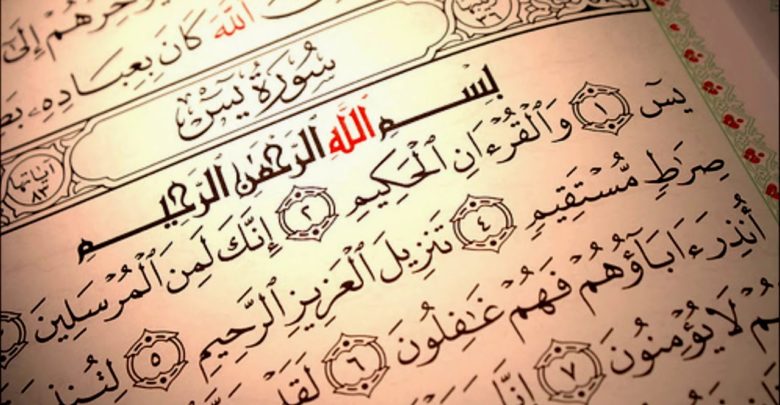 إِلَىٰ
ٱللَّهَ كَانَ بِعِبَادِهِۦ
٣٦
سُورَةُ يسٓ
آيَاتُهَا ٨٣
بِسْمِ ٱللَّهِ ٱلرَّحْمَٰنِ ٱلرَّحِيمِ
يسٓ ١ وَٱلْقُرْءَانِ ٱلْحَكِيمِ ٢ إِنَّكَ لَمِنَ ٱلْمُرْسَلِينَ
صِرَٰطٍ مُّسْتَقِيمٍ ٤ تَنزِيلَ ٱلْعَزِيزِ ٱلرَّحِيمِ ٥
أُنذِرَ ءَابَآؤُهُمْ فَهُمْ غَٰفِلُونَ ٦ لَقَدْ
لَا يُؤْمِنُونَ ٧ إِنَّا